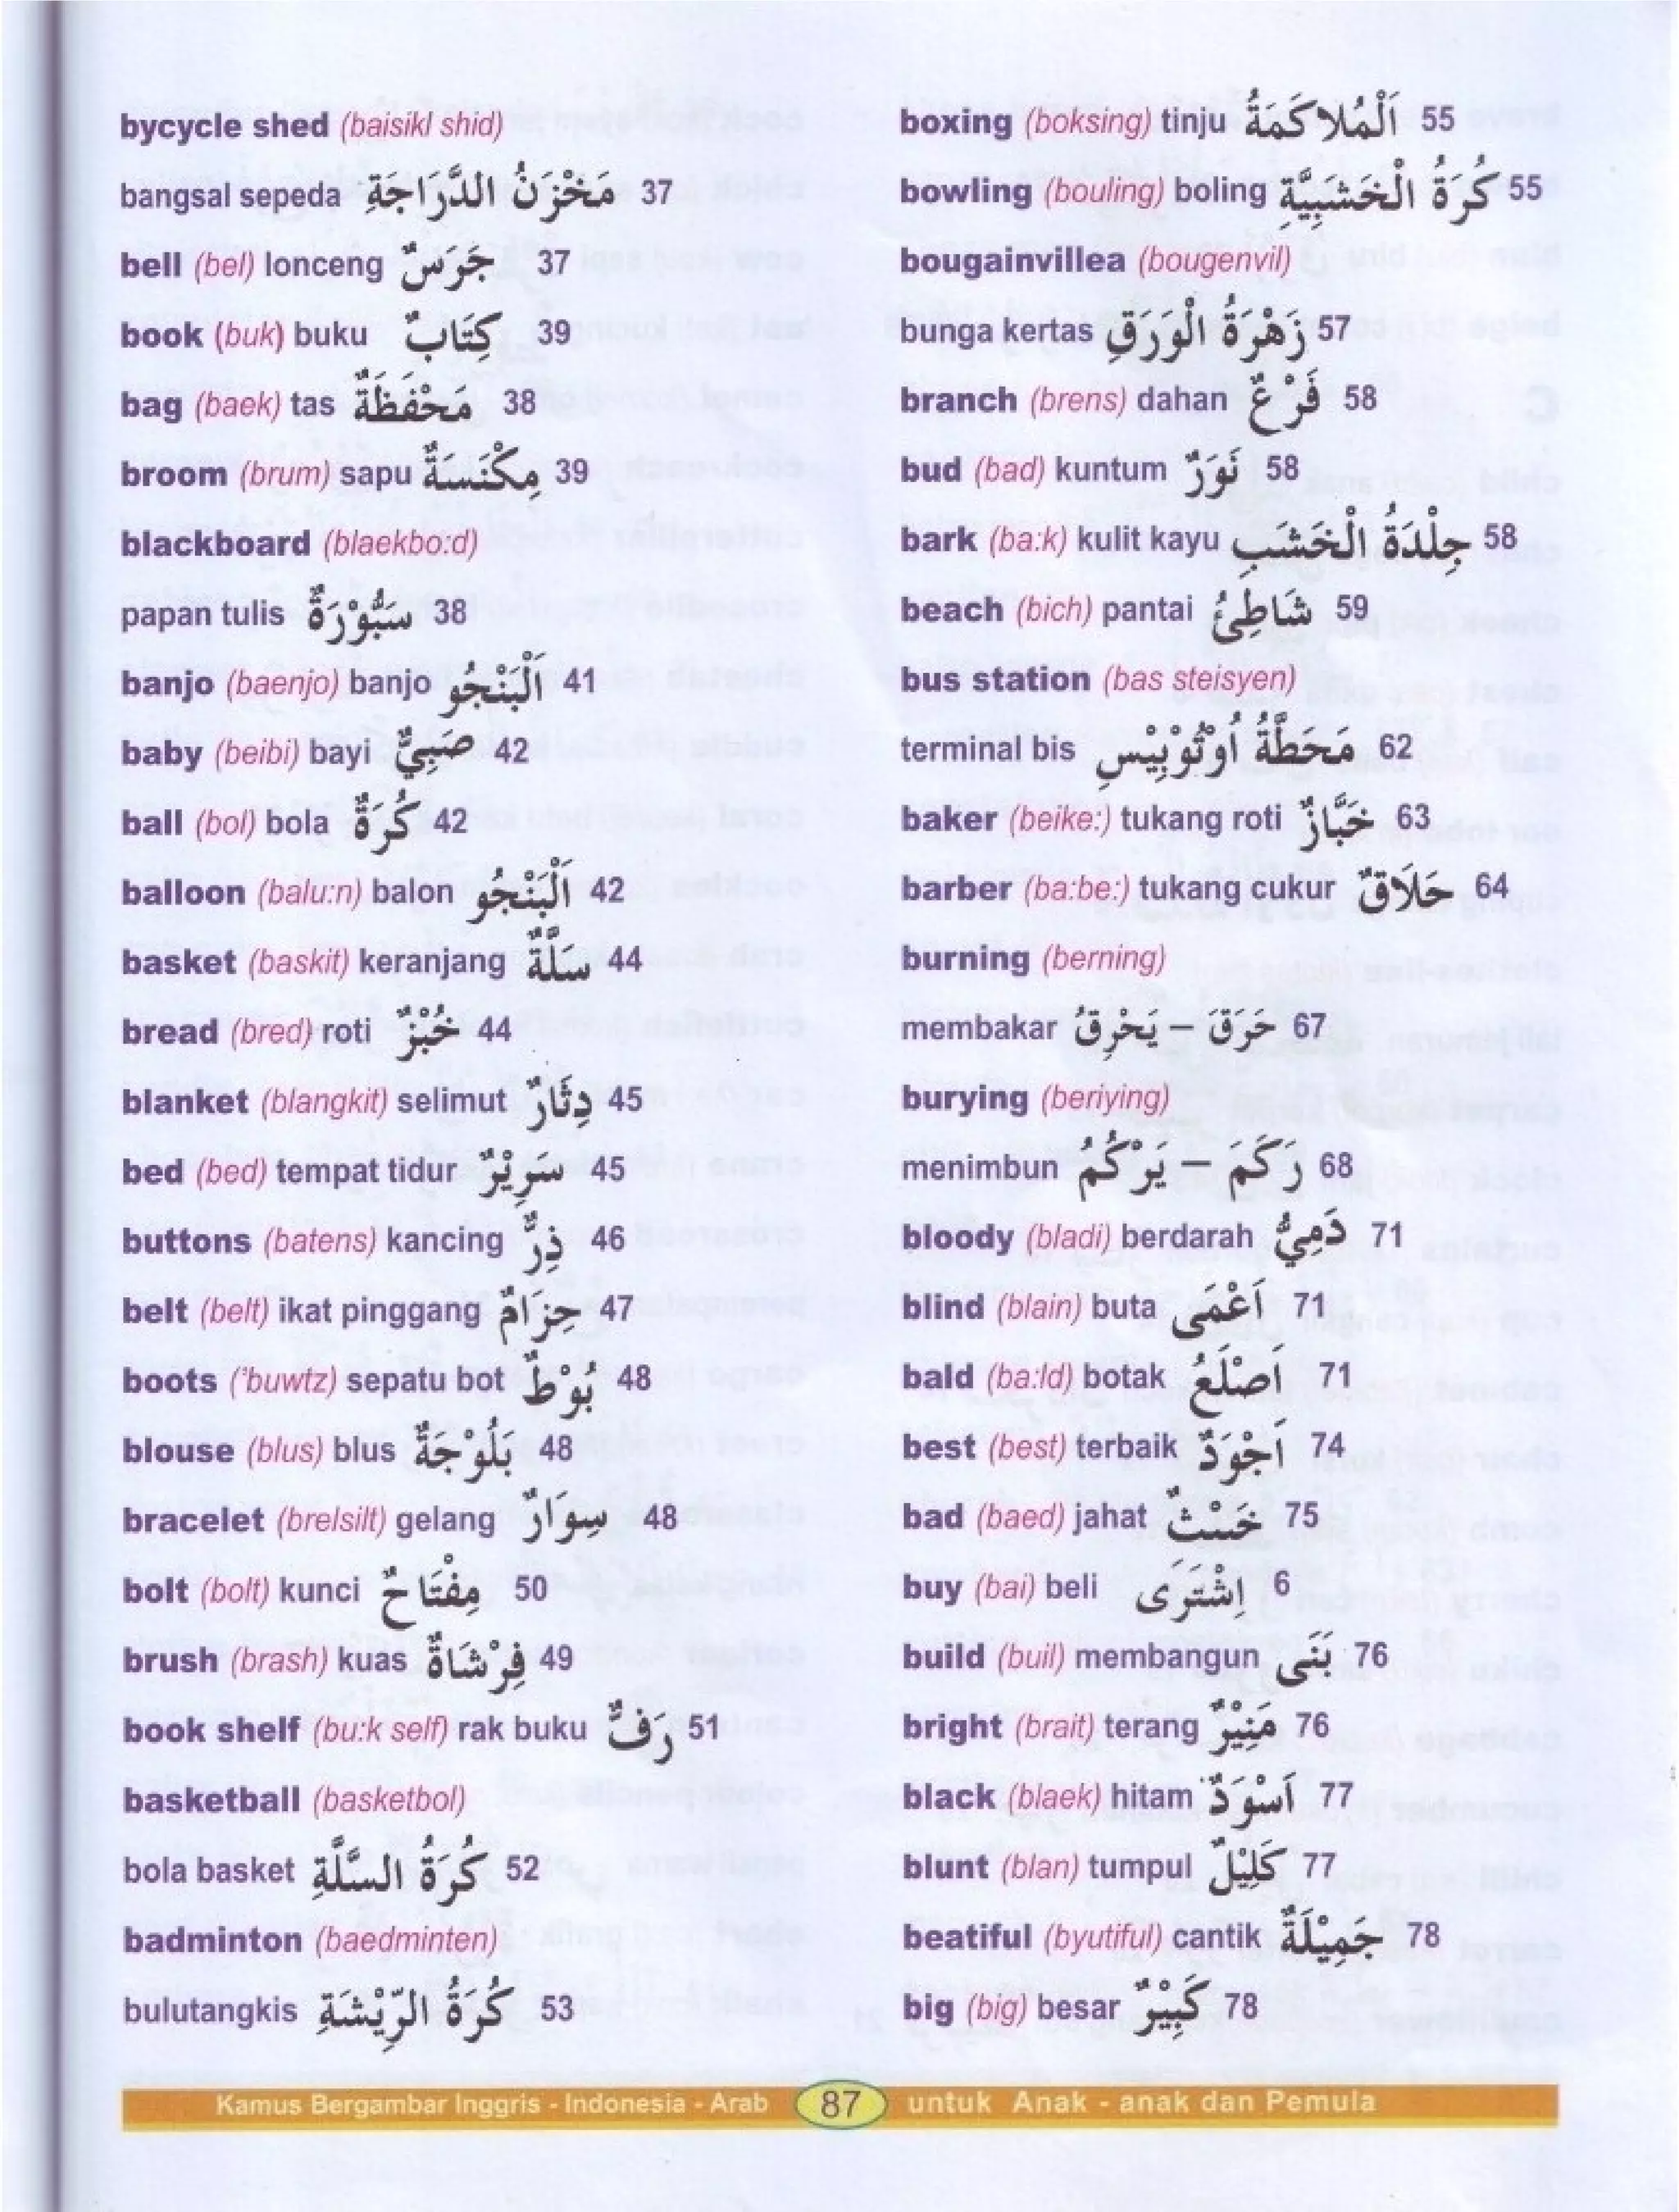 bycycle shed (baisikl shid)
bangsal sepeda مَخْزَنُ الدَّرَاجَةِ 37
bell (bel) lonceng جَرَسٌ 37
book (buk) buku كِتَابٌ 39
bag (baek) tas مَحْفَظَةٌ 38
broom (brum) sapu مِكْنَسَةٌ 39
blackboard (blaekbo:d)
papan tulis سَبُّوْرَةٌ 38
banjo (baenjo) banjo اَلْبَنْجُو 41
baby (beibi) bayi صَبِيٌّ 42
ball (bol) bola كُرَةٌ 42
balloon (balu:n) balon اَلْبَنْجُو 42
basket (baskit) keranjang سَلَّةٌ 44
bread (bred) roti خُبْزٌ 44
blanket (blangkit) selimut دِثَارٌ 45
bed (bed) tempat tidur سَرِيْرٌ 45
buttons (batens) kancing ذِرٌّ 46
belt (belt) ikat pinggang حِزَامٌ 47
boots ('buwtz) sepatu bot بُوْطٌ 48
blouse (blus) blus بَلُوْجَةٌ 48
bracelet (brelsilt) gelang سِوَارٌ 48
bolt (bolt) kunci مِفْتَاحٌ 50
brush (brash) kuas فِرْشَاةٌ 49
book shelf (bu:k self) rak buku رَفٌّ 51
basketball (basketbol)
bola basket كُرَةُ السَّلَّةِ 52
badminton (baedminten)
bulutangkis كُرَةُ الرِّيْشَةِ 53
boxing (boksing) tinju اَلْمُلاَكَمَةُ 55
bowling (bouling) boling كُرَةُ الْخَشَبِيَّةِ 55
bougainvillea (bougenvil)
bunga kertas زَهْرَةُ الْوَرَقِ 57
branch (brens) dahan فَرْعٌ 58
bud (bad) kuntum نَوَرٌ 58
bark (ba:k) kulit kayu جِلْدَةُ الْخَشَبِ 58
beach (bich) pantai شَاطِئُ 59
bus station (bas steisyen)
terminal bis مَحَطَّةُ اُوْتُوْبِيْسِ 62
baker (beike:) tukang roti خَبَّازٌ 63
barber (ba:be:) tukang cukur حَلَاقٌ 64
burning (berning)
membakar حَرَقَ – يَحْرِقُ 67
burying (beriying)
menimbun رَكَمَ – يَرْكُمُ 68
bloody (bladi) berdarah دَمِيُّ 71
blind (blain) buta اَعْمَى 71
bald (ba:ld) botak اَصْلَعُ 71
best (best) terbaik اَجْوَدٌ 74
bad (baed) jahat خَسْثٌ 75
buy (bai) beli اِشْتَرَى 6
build (buil) membangun بَنَى 76
bright (brait) terang مَنِيْرٌ 76
black (blaek) hitam اَسْوَدٌ 77
blunt (blan) tumpul كَلِيْلٌ 77
beatiful (byutiful) cantik جَمِيْلَةٌ 78
big (big) besar كَبِيْرٌ 78
Kamus Bergambar Inggris - Indonesia - Arab 87 untuk Anak - anak dan Pemula